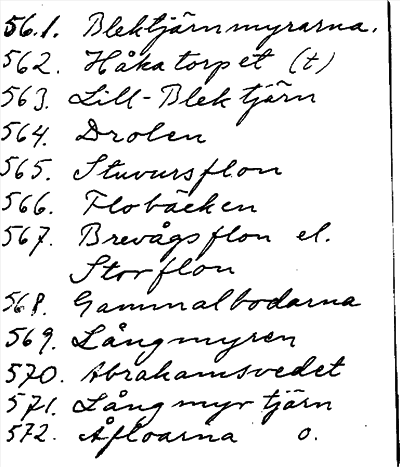 561. Blektjärnmyrarna.
562. Håkatorpet (t)
563. Lill-Blektjärn
564. Drolen
565. Stuvursflon
566. Flobäcken
567. Brevågsflon el.
Storflon
568. Gammalbodarna
569. Långmyren
570. Abrahamsvedet
571. Långmyrtjärn
572. Åfloarna o.